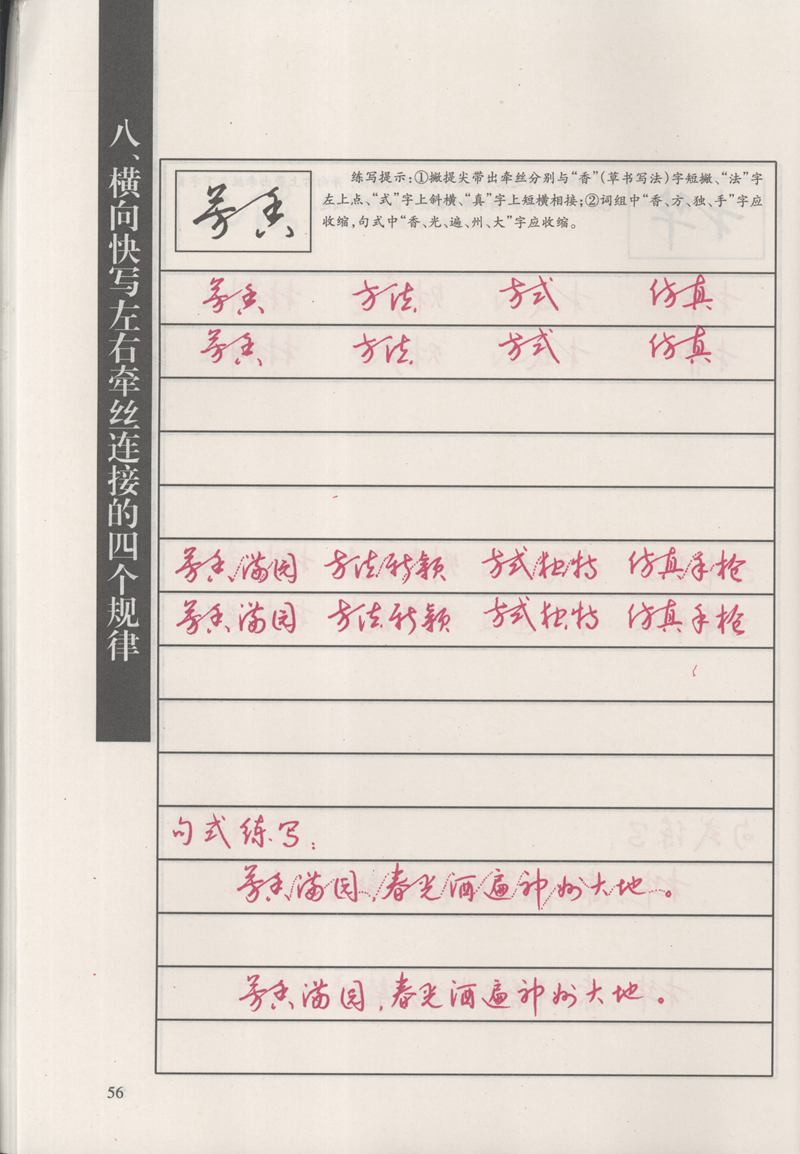 八、横向快写左右牵丝连接的四个规律
芳香
练写提示：①撇提尖带出牵丝分别与“香”(草书写法)字短撇、“法”字
左上点、“式”字上斜横、“真”字上短横相接；②词组中“香、方、独、手”字应
收缩，句式中“香、光、遍、州、大”字应收缩。
芳香 方法 方式 仿真
芳香 方法 方式 仿真
芳香满园 方法新颖 方式独特 仿真手枪
芳香满园 方法新颖 方式独特 仿真手枪
句式练写：
芳香满园，春光洒遍神州大地。
芳香满园，春光洒遍神州大地。
56